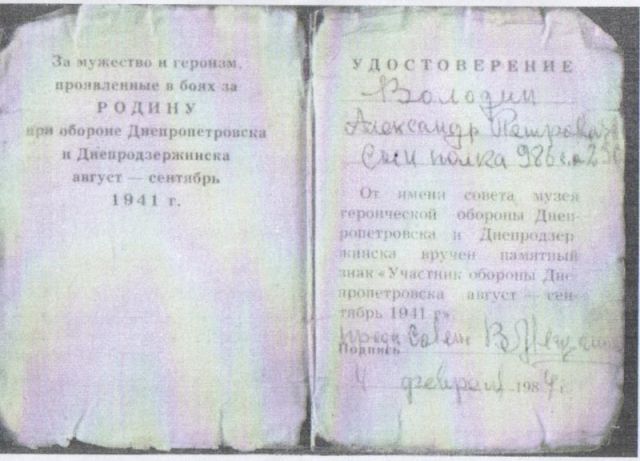 За мужество и героизм,
проявленные в боях за
РОДИНУ
при обороне Днепропетровска
и Днепродзержинска
август — сентябрь
1941 г.
УДОСТОВЕРЕНИЕ
Володин
Александр Петрович
Сын полка 986 с.п.
От имени совета музея
героической обороны Днеп-
ропетровска и Днепродзер-
жинска вручен памятный
знак «Участник обороны Дне-
пропетровска август — сен-
тябрь 1941 г»
Подпись
4 февраля 1984 г.